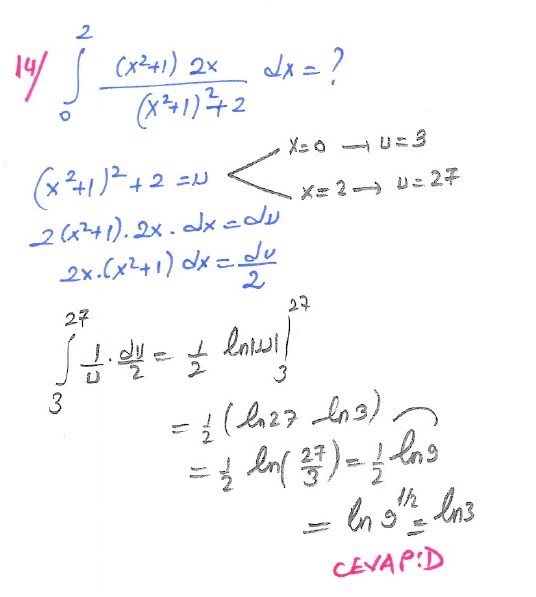 14/ ∫₀² (x²+1) 2x / (x²+1)²+2 dx = ?
(x²+1)² + 2 = u
x=0 → u=3
x=2 → u=27
2(x²+1).2x.dx = du
2x.(x²+1) dx = du/2
∫₃²⁷ 1/u · du/2 = 1/2 ln|u| |₃²⁷
= 1/2 (ln27 - ln3)
= 1/2 ln(27/3) = 1/2 ln9
= ln 9^1/2 = ln3
CEVAP:D